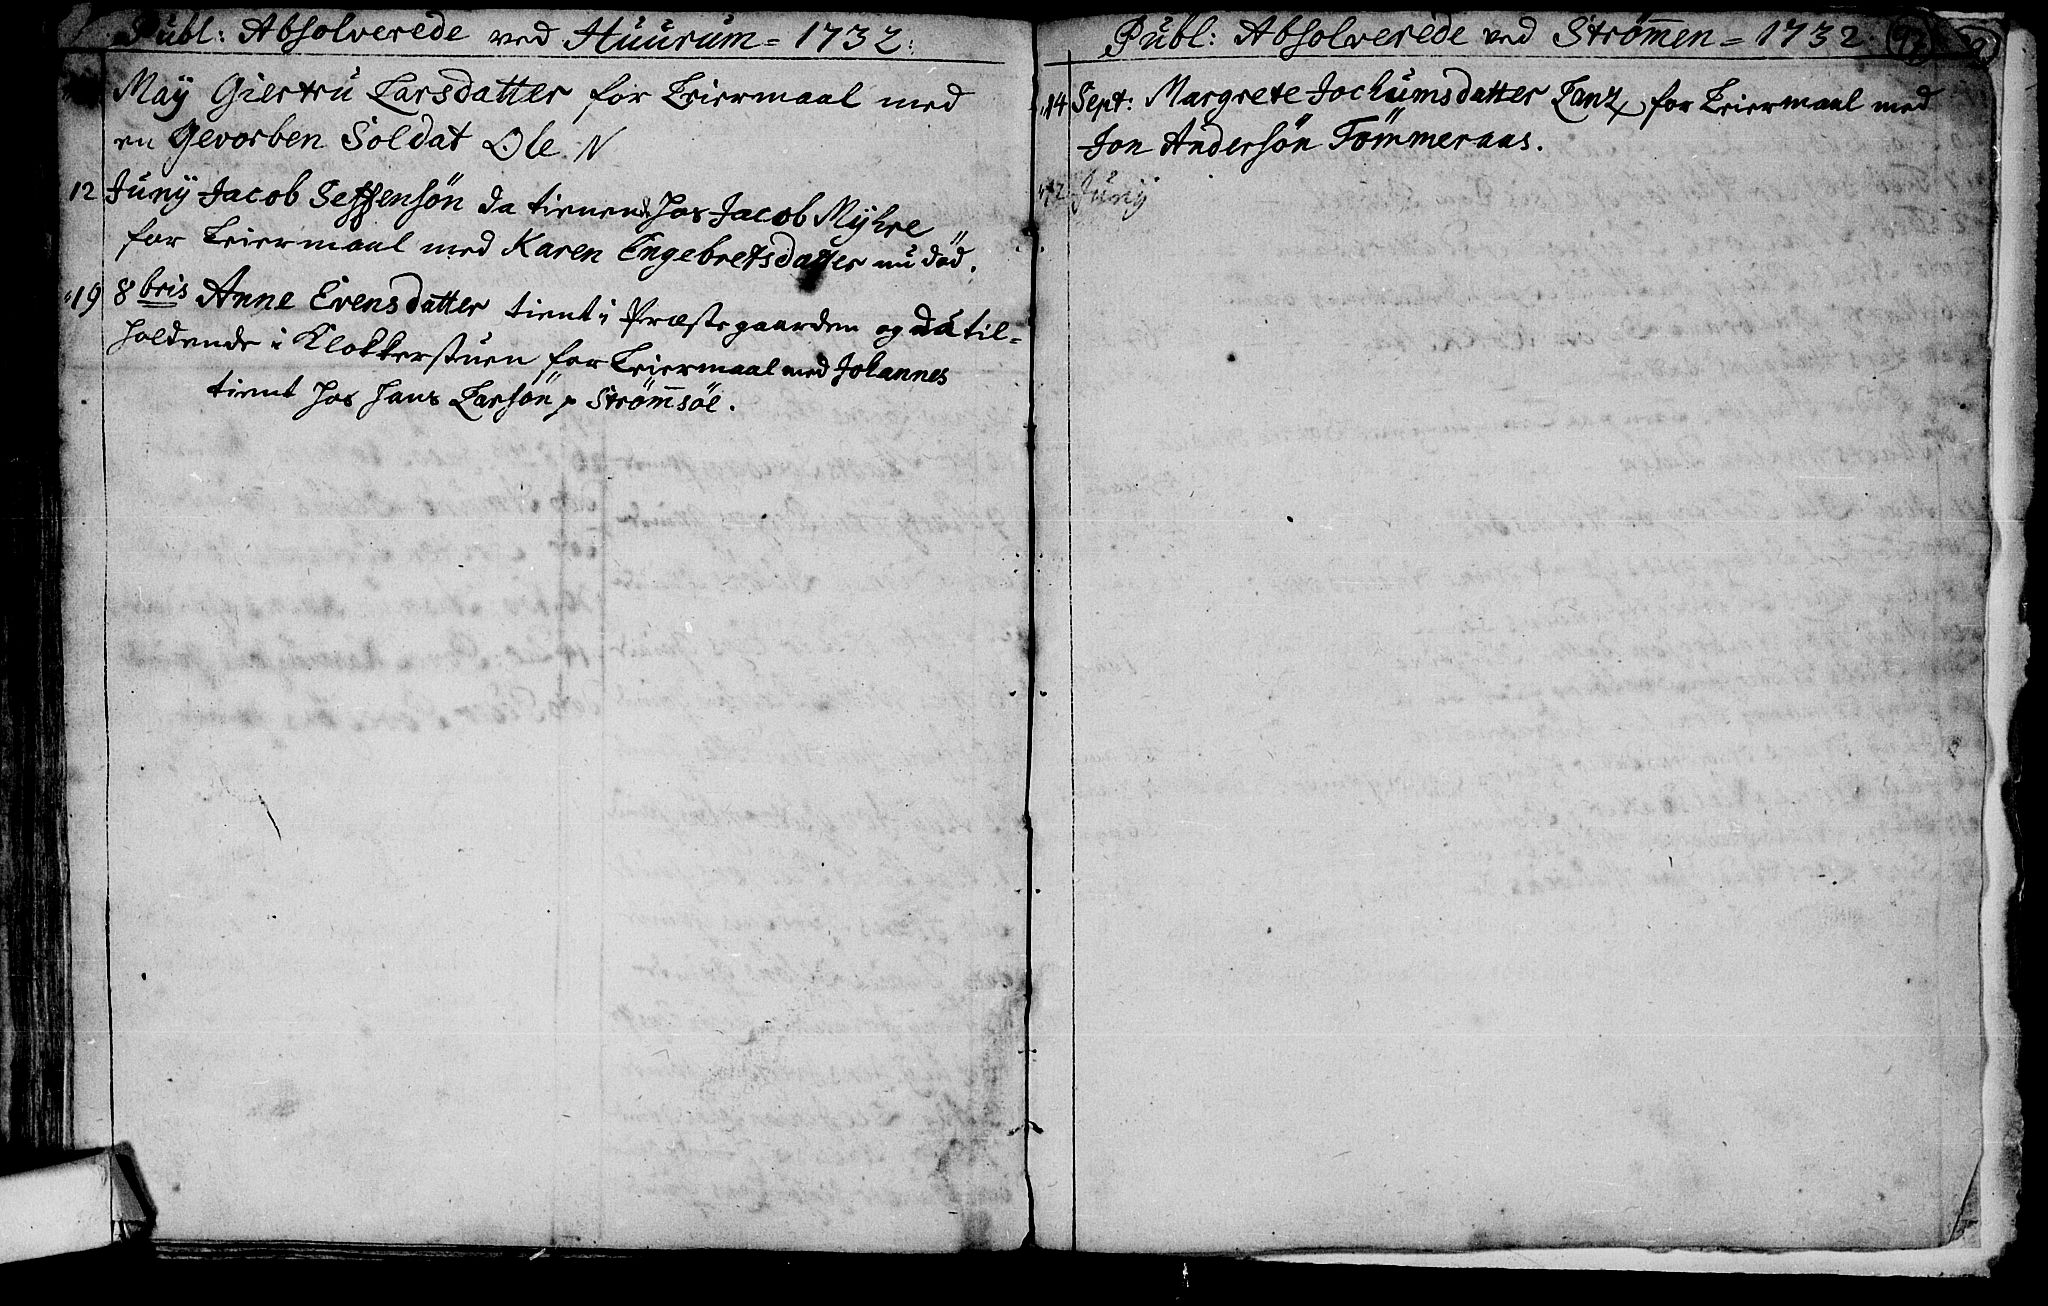 Publ: Absolverede ved Huurum = 1732:
Maÿ Giertru Larsdatter for Leiermaal med
en Gevorben Soldat Ole N
12 Junÿ Jacob Steffensön da tienende hos Jacob Mÿhre
for Leiermaal med Karen Engebretsdatter nu död.
19 8bris Anne Evensdatter tient i Præstegaarden og da til=
holdende i Klokkerstuen for Leiermaal med Johannes
tient hos Hans Larsön p Strømsöe.
Publ: Absolverede ved Strømen = 1732.
14 Sept: Margrete Jochumsdatter Lanz for Leiermaal med
Jon Andersön Tømmeraas.
12 Junÿ